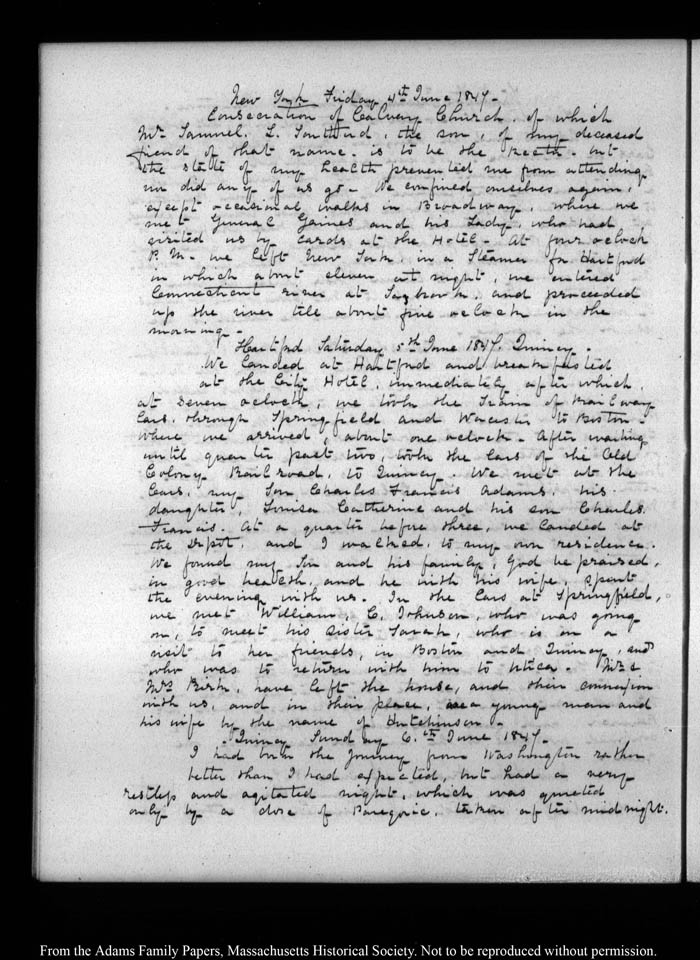 New York Friday 4th June 1847.
Consecration of Calvary Church, of which
Mr Samuel. L. Southard, the son, of my deceased
friend of that name. is to be the Rector. but
the state of my health prevented me from attending
nor did any of us go. We confined ourselves again,
except occasional walks in Broadway, where we
met General Gaines and his Lady, who had
visited us by Cards at the Hotel. At four oclock
P. M. we left New York, in a Steamer for Hartford
in which about eleven at night, we entered
Connecticut river at Saybrook, and proceeded
up the river till about five oclock in the
morning.
Hartford Saturday 5th June 1847. Quincy.
We landed at Hartford and breakfasted
at the City Hotel, immediately after which,
at seven oclock, we took the Train of Railway
Cars, through Springfield and Worcester to Boston.
Where we arrived, about one oclock. After waiting
until quarter past two, took the Cars of the Old
Colony Railroad, to Quincy. We met at the
Cars, my Son Charles Francis Adams, his
daughter, Louisa Catherine and his son Charles
Francis. At a quarter before three, we landed at
the Depot, and I walked, to my own residence.
We found my Son and his family, God be praised,
in good health, and he with his wife, spent
the evening with us. In the Cars at Springfield,
we met William, C. Johnson, who was going
on, to meet his Sister Sarah, who is on a
visit to her friends, in Boston and Quincy, and
who was to return with him to Utica. Mr &
Mrs Kirk, have left the house, and their connexion
with us, and in their place, a young man and
his wife by the name of Hutchinson.
Quincy Sunday 6.th June 1847.
I had born the Journey from Washington rather
better than I had expected, but had a very
restless and agitated night, which was quieted
only by a dose of Paregoric, taken after midnight.
From the Adams Family Papers, Massachusetts Historical Society. Not to be reproduced without permission.